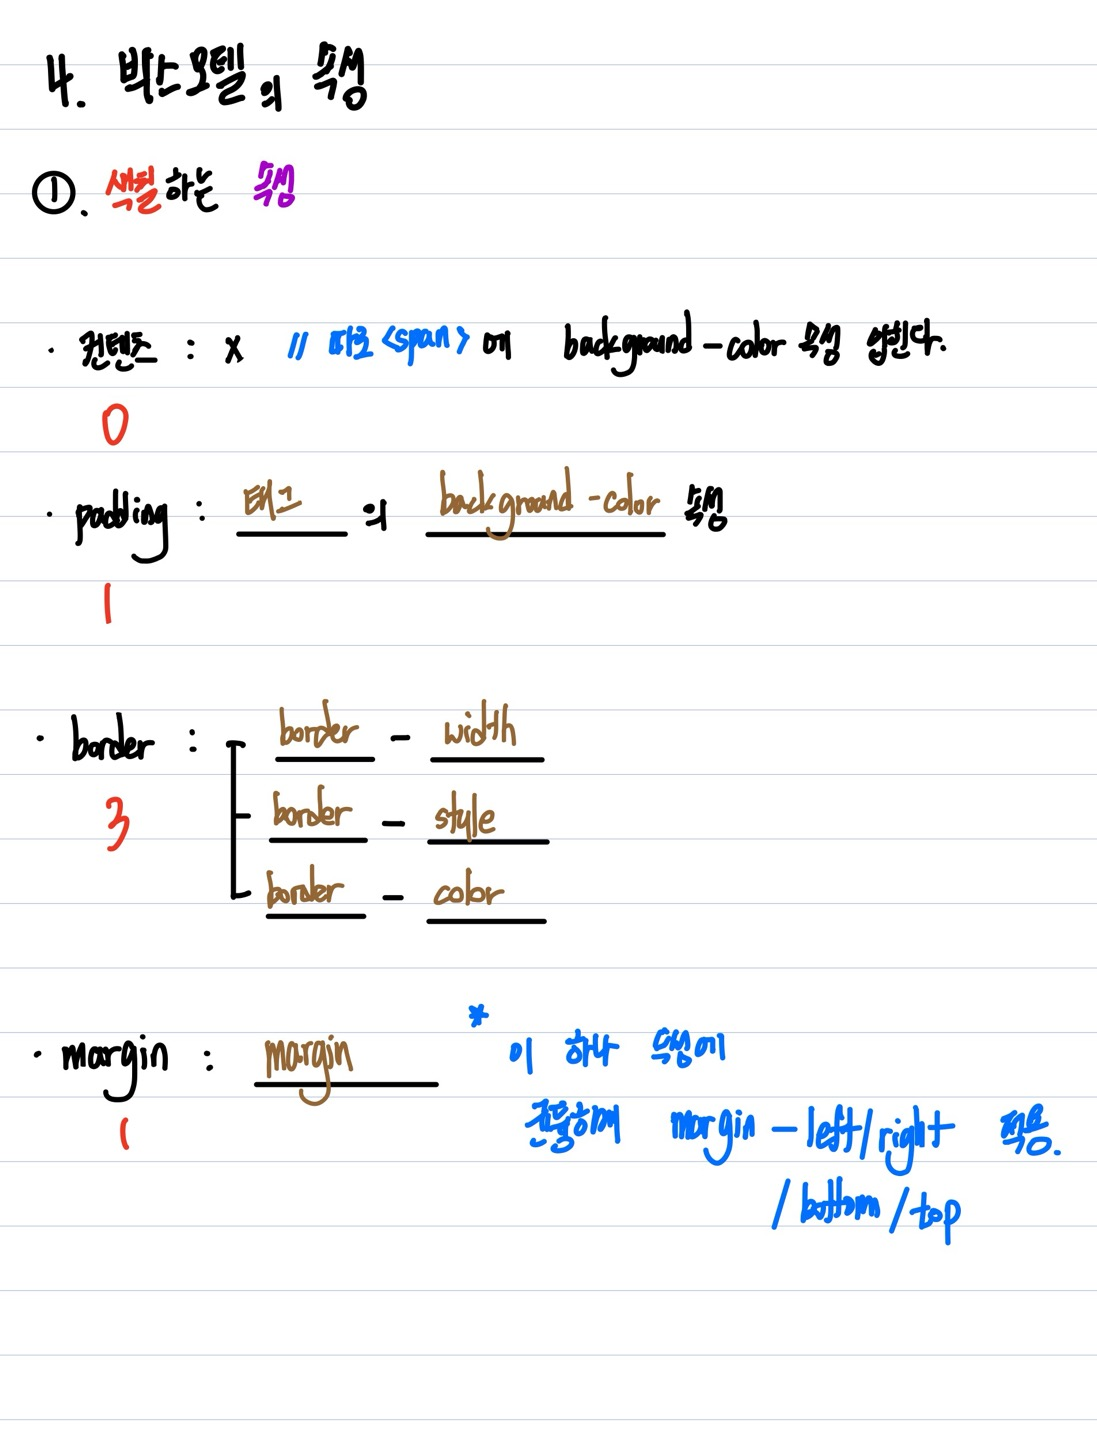 4. 박스모델의 속성
①. 색칠하는 속성
· 컨텐츠 : x // 따로 <span> 에 background-color 속성 입힌다.
0
· padding : 태그 의 background-color 속성
1
· border : border - width
border - style
3
border - color
· margin : margin * 이 하나 속성에
1
margin - left/right 적용.
/ bottom / top